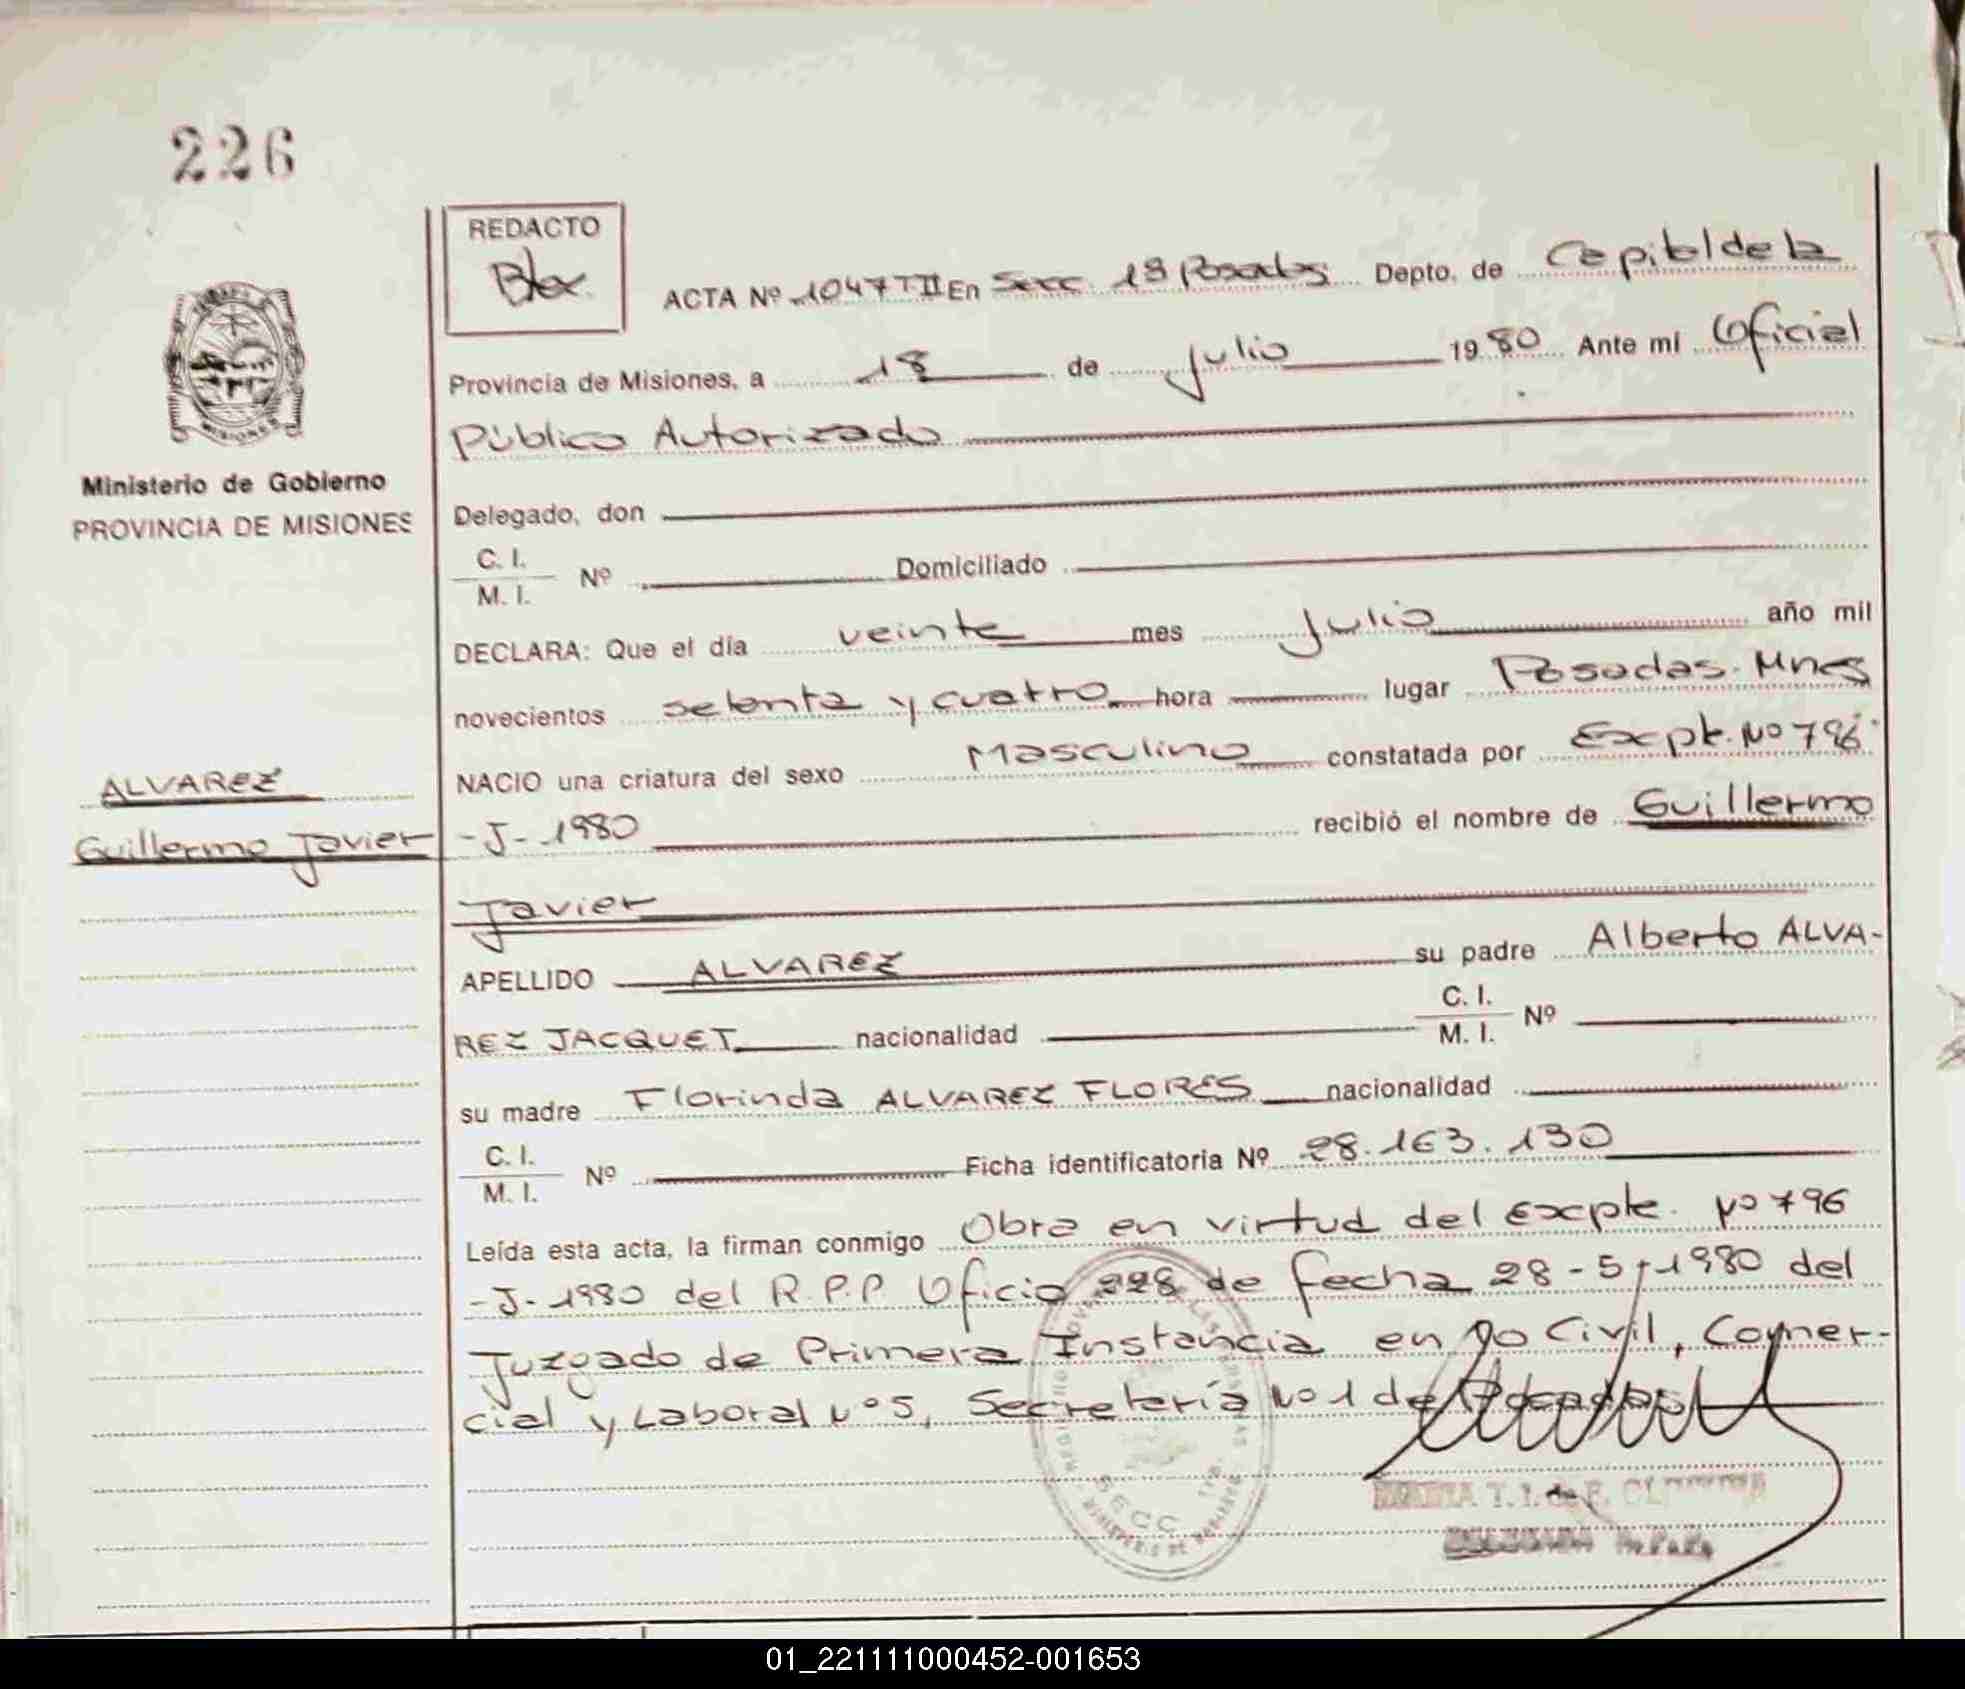 226
REDACTO
ACTA Nº 1047 T II En Secc. 1ª Posadas Depto. de Capital de la
Provincia de Misiones, a 18 de Julio 1980 Ante mí Oficial
Público Autorizado
MISIONES
Ministerio de Gobierno
PROVINCIA DE MISIONES
Delegado, don
C. I.
M. I. Nº Domiciliado
DECLARA: Que el día veinte mes Julio año mil
novecientos setenta y cuatro hora lugar Posadas. Mnes
NACIO una criatura del sexo Masculino constatada por Expte. Nº 796
-J-1980 recibió el nombre de Guillermo
Javier
ALVAREZ
Guillermo Javier
APELLIDO ALVAREZ su padre Alberto ALVA-
REZ JACQUET nacionalidad C. I. M. I. Nº
su madre Florinda ALVAREZ FLORES nacionalidad
C. I.
M. I. Nº Ficha identificatoria Nº 28.163.130
Leída esta acta, la firman conmigo Obra en virtud del Expte. Nº 796
-J-1980 del R.P.P Oficio 228 de fecha 28-5-1980 del
Juzgado de Primera Instancia en lo Civil, Comer-
cial y Laboral Nº 5, Secretaría Nº 1 de Posadas
SECC.
01_221111000452-001653